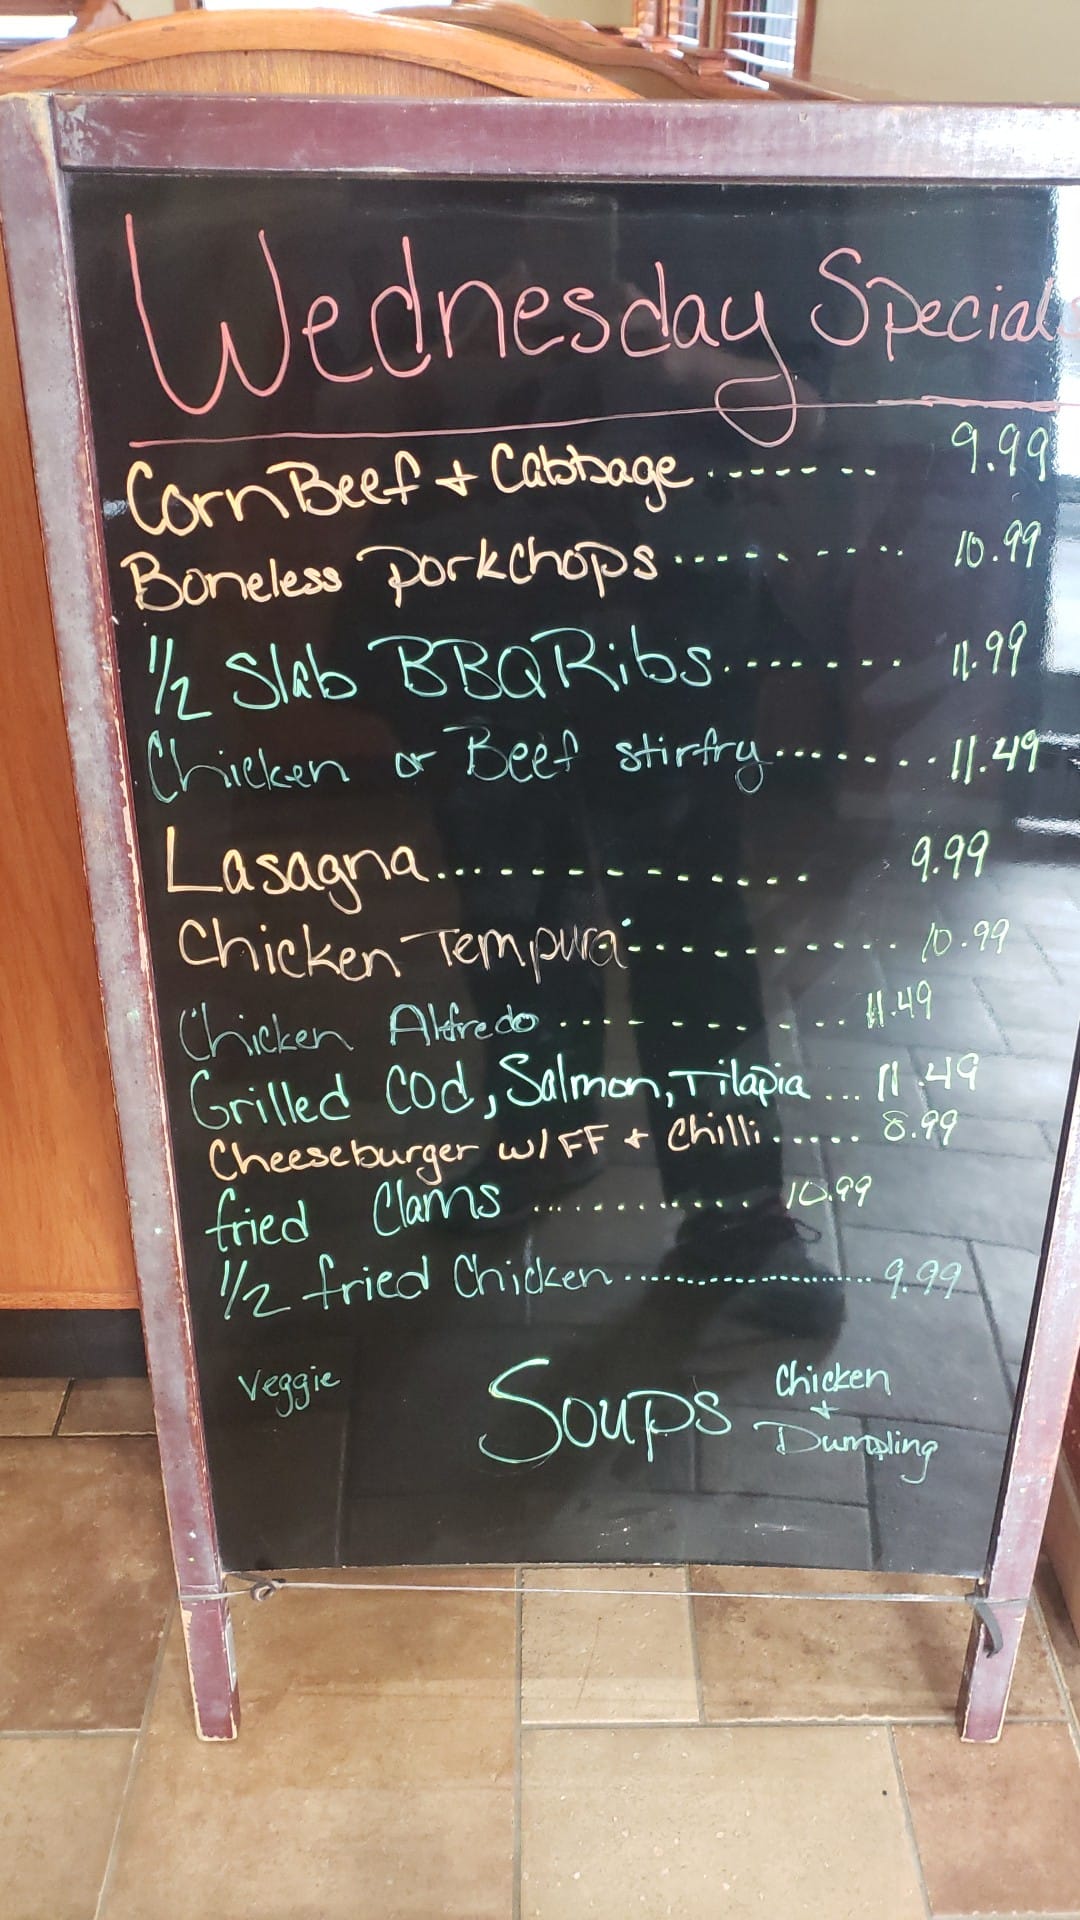 Wednesday Specials
Corn Beef + Cabbage ....... 9.99
Boneless Porkchops ......... 10.99
1/2 Slab BBQ Ribs ........ 11.99
Chicken or Beef stirfry ........ 11.49
Lasagna ............. 9.99
Chicken Tempura ........... 10.99
Chicken Alfredo ........... 11.49
Grilled Cod, Salmon, Tilapia ... 11.49
Cheeseburger w/ FF + Chilli ..... 8.99
fried Clams ............ 10.99
1/2 fried Chicken ........................ 9.99
Veggie Soups Chicken
+
Dumpling